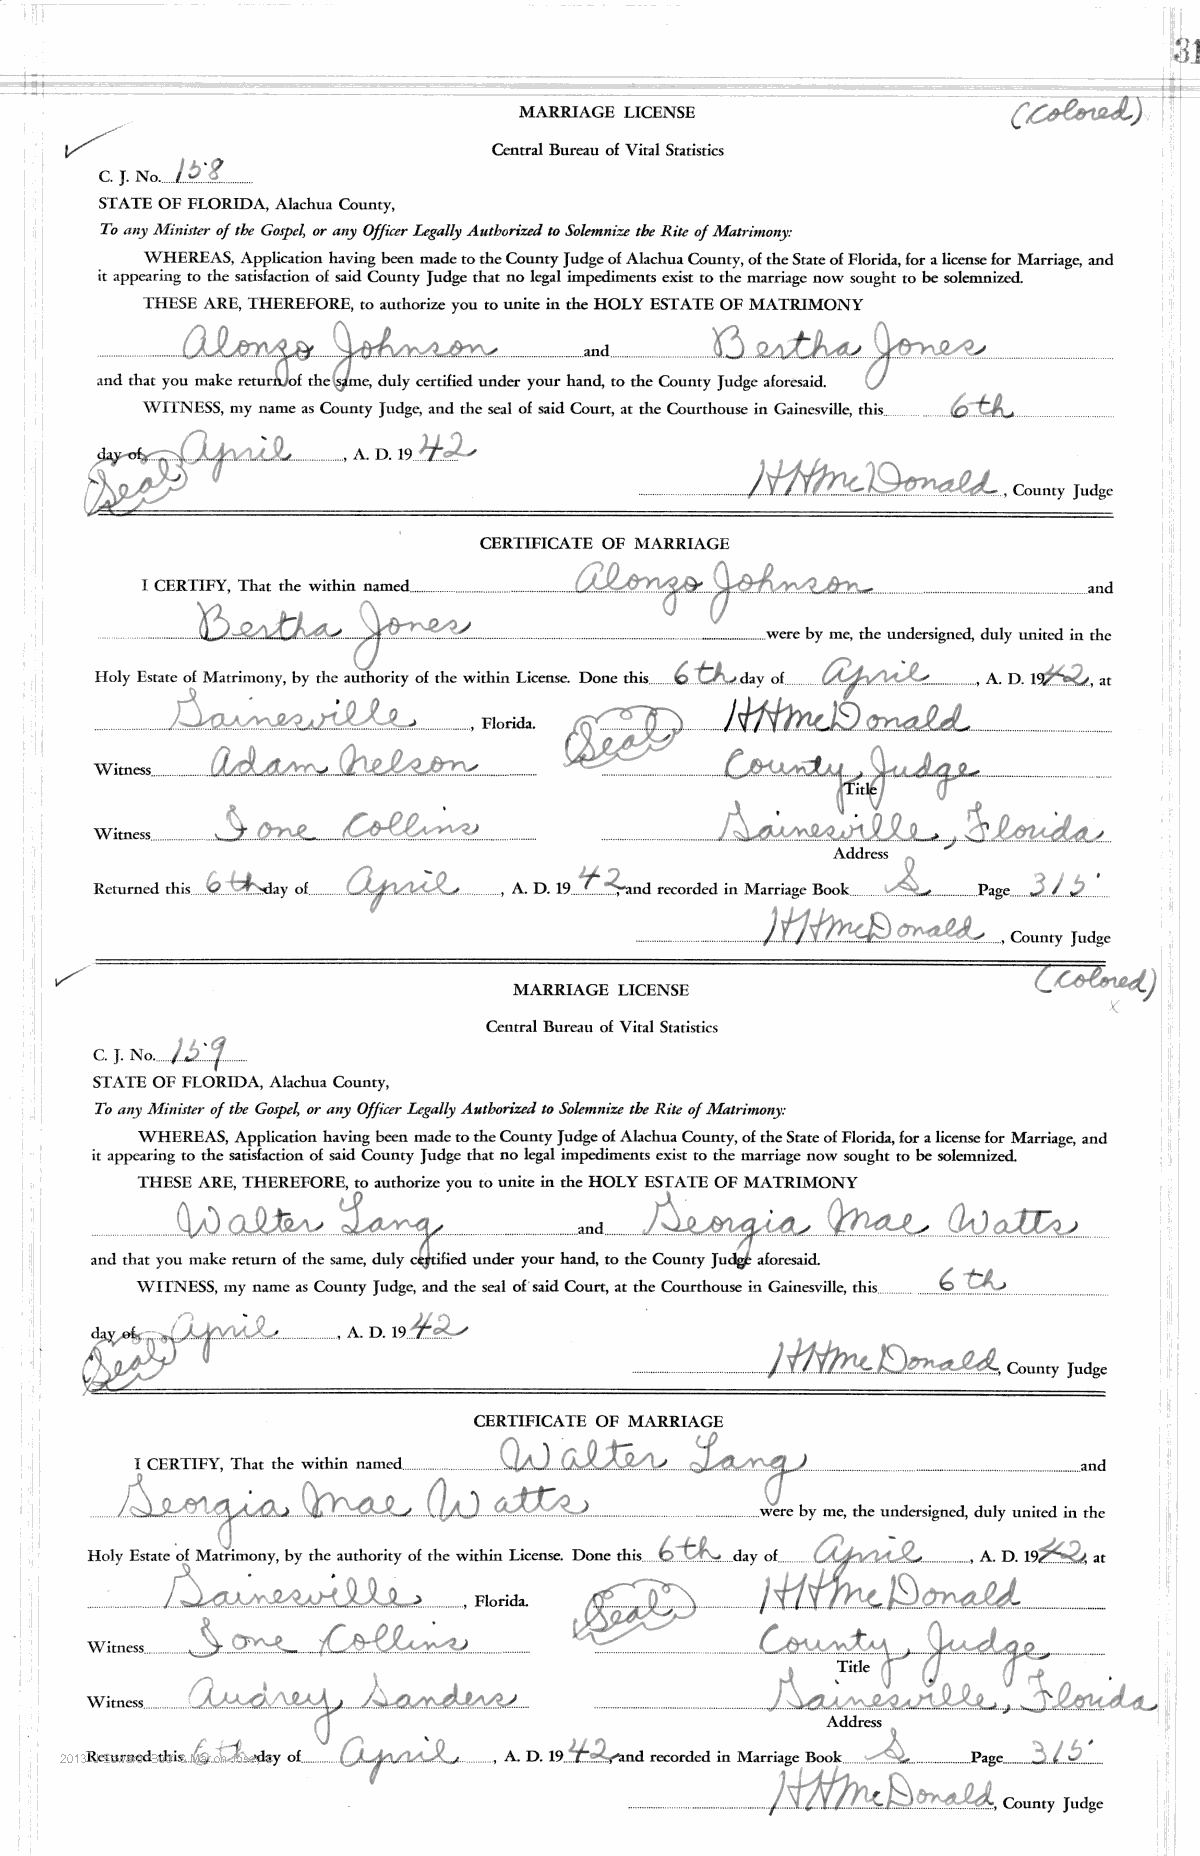 31
MARRIAGE LICENSE (Colored)
Central Bureau of Vital Statistics
C. J. No. 158
STATE OF FLORIDA, Alachua County,
To any Minister of the Gospel, or any Officer Legally Authorized to Solemnize the Rite of Matrimony:
WHEREAS, Application having been made to the County Judge of Alachua County, of the State of Florida, for a license for Marriage, and
it appearing to the satisfaction of said County Judge that no legal impediments exist to the marriage now sought to be solemnized.
THESE ARE, THEREFORE, to authorize you to unite in the HOLY ESTATE OF MATRIMONY
Alonzo Johnson and Bertha Jones
and that you make return of the same, duly certified under your hand, to the County Judge aforesaid.
WITNESS, my name as County Judge, and the seal of said Court, at the Courthouse in Gainesville, this 6th
day of April, A. D. 1942
(Seal) HHMcDonald, County Judge
CERTIFICATE OF MARRIAGE
I CERTIFY, That the within named Alonzo Johnson and
Bertha Jones were by me, the undersigned, duly united in the
Holy Estate of Matrimony, by the authority of the within License. Done this 6th day of April, A. D. 1942, at
Gainesville, Florida. (Seal) HHMcDonald
Witness Adam Nelson County Judge
Title
Witness Ione Collins Gainesville, Florida
Address
Returned this 6th day of April, A. D. 1942, and recorded in Marriage Book S Page 315
HHMcDonald, County Judge
(Colored)
MARRIAGE LICENSE
x
Central Bureau of Vital Statistics
C. J. No. 159
STATE OF FLORIDA, Alachua County,
To any Minister of the Gospel, or any Officer Legally Authorized to Solemnize the Rite of Matrimony:
WHEREAS, Application having been made to the County Judge of Alachua County, of the State of Florida, for a license for Marriage, and
it appearing to the satisfaction of said County Judge that no legal impediments exist to the marriage now sought to be solemnized.
THESE ARE, THEREFORE, to authorize you to unite in the HOLY ESTATE OF MATRIMONY
Walter Lang and Georgia Mae Watts
and that you make return of the same, duly certified under your hand, to the County Judge aforesaid.
WITNESS, my name as County Judge, and the seal of said Court, at the Courthouse in Gainesville, this 6th
day of April, A. D. 1942
(Seal) HHMcDonald, County Judge
CERTIFICATE OF MARRIAGE
I CERTIFY, That the within named Walter Lang and
Georgia Mae Watts were by me, the undersigned, duly united in the
Holy Estate of Matrimony, by the authority of the within License. Done this 6th day of April, A. D. 1942, at
Gainesville, Florida. (Seal) HHMcDonald
Witness Ione Collins County Judge
Title
Witness Audrey Sanders Gainesville, Florida
Address
Returned this 6th day of April, A. D. 1942, and recorded in Marriage Book S Page 315
HHMcDonald, County Judge